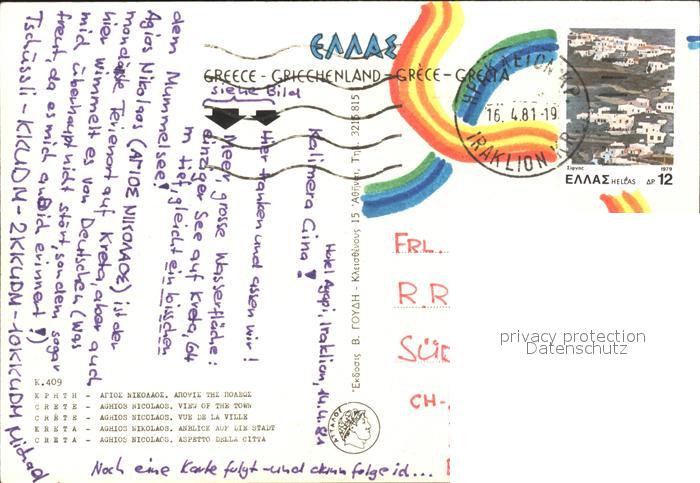 ΕΛΛΑΣ
GREECE - GRIECHENLAND - GRÈCE - GRECIA
siehe Bild
Hotel Agapi, Iraklion, 14.4.81
Kalimera Gina!
Hier tranken und assen wir!
Meer grosse Wasserfläche:
einziger See auf Kreta, 64
m tief, gleicht ein bisschen
dem Mummelsee!
Agios Nikolaos (ΑΓΙΟΣ ΝΙΚΟΛΑΟΣ) ist der
mondänste Ferienort auf Kreta, aber auch
hier wimmelt es von Deutschen (was
mid überhaupt nicht stört, sondern sogar
freut, da es mid an Bid erinnert!)
Tschüssli - KKUDM - 2KKUDM - 10KKUDM Michael
Noch eine Karte folgt - und dann folge id...
K.409
ΚΡΗΤΗ - ΑΓΙΟΣ ΝΙΚΟΛΑΟΣ, ΑΠΟΨΙΣ ΤΗΣ ΠΟΛΕΩΣ
CRETE - AGHIOS NICOLAOS, VIEW OF THE TOWN
CRÈTE - AGHIOS NICOLAOS, VUE DE LA VILLE
KRETA - AGHIOS NICOLAOS, ANBLICK AUF DIE STADT
CRETA - AGHIOS NICOLAOS, ASPETTO DELLA CITTA
Ἐκδοσις Β. ΓΟΥΔΗ - Κλεισθένους 15 Ἀθῆναι, Τηλ. 3215 815
ΑΤΤΑΛΟΣ
ΗΡΑΚΛΕΙΟΝ ΚΡ.
16. 4.81-19
IRAKLION
Σίφνος 1979
ΕΛΛΑΣ HELLAS ΔΡ 12
FRL.
R R
SÜD
CH-
privacy protection
Datenschutz